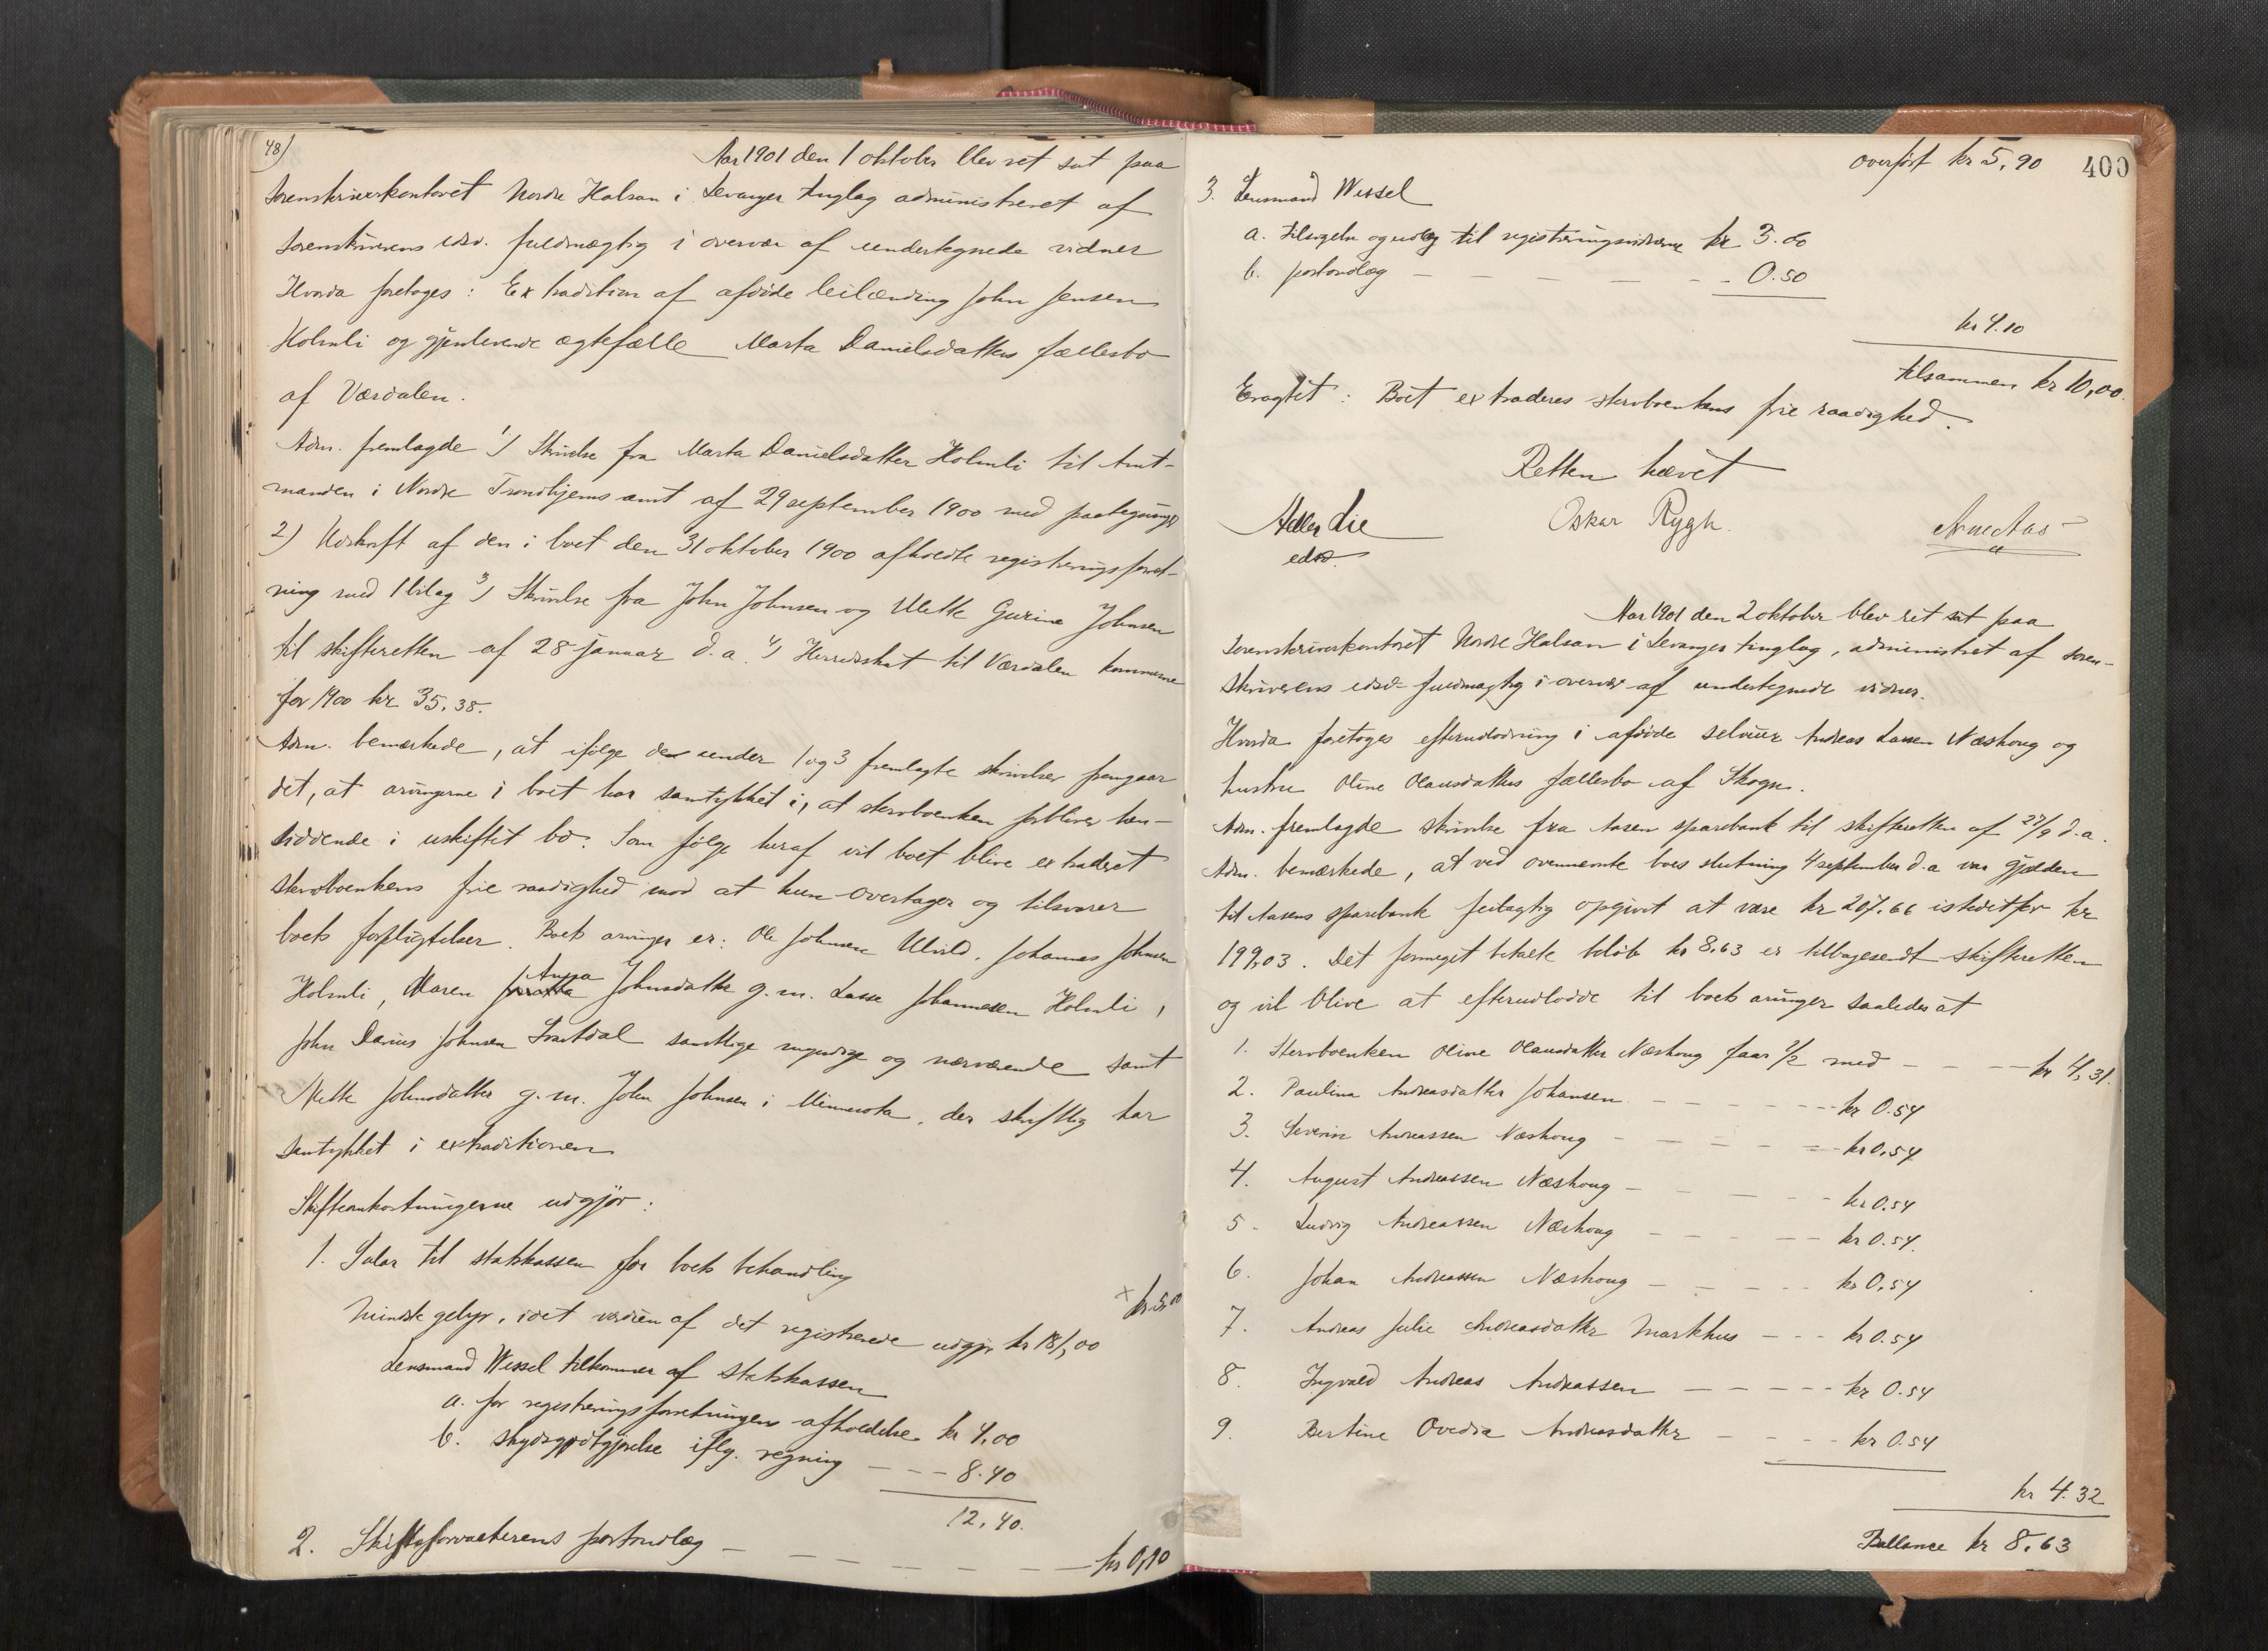 48)
Aar 1901 den 1 oktober blev ret sat paa
sorenskriverkontoret Nordre Halsan i Levanger tinglag administreret af
sorenskriverens edsv. fuldmægtig i overvær af undertegnede vidner
Hvorda foretoges: Extradition af afdøde leilænding John Jensen
Holmli og gjenlevende ægtefælle Marta Danielsdatters fællesbo
af Værdalen.
Adm. fremlagde 1) Skrivelse fra Marta Danielsdatter Holmli til Amt-
manden i Nordre Trondhjems amt af 29 september 1900 med paategninger
2) Udskrift af den i boet den 31 oktober 1900 afholdte registreringsforret-
ning med 1 bilag 3) Skrivelse fra John Johnsen og Mette Gurine Johnsen
til skifteretten af 28 januar d.a. 4) Herredsskat til Værdalen kommune
for 1900 kr 35.38.
Adm. bemærkede, at ifølge de under 1 og 3 fremlagte skrivelser fremgaar
det, at arvingerne i boet har samtykket i, at sterboenken forbliver hen-
siddende i uskiftet bo. Som følge heraf vil boet blive extraderet
sterboenkens frie raadighed mod at hun overtager og tilsvarer
boets forpligtelser. Boets arvinger er: Ole Johnsen Ulvild, Johannes Johnsen
Holmli, Maren Anna Johnsdatter g.m. Lasse Johannesen Holmli,
John Darius Johnsen Svartdal samtlige myndige og nærværende samt
Mette Johnsdatter g.m. John Johnsen i Minnesota, der skriftlig har
samtykket i extraditionen
Skifteomkostningerne udgjør:
1. Salær til statskassen for boets behandling
mindste gebyr, idet værdien af det registrerede udgjør kr 181,00 × kr. 5,00
Lensmand Wessel tilkommer af statskassen
a. for registreringsforretningens afholdelse kr 4,00
b. skydsgodtgjørelse iflg. regning — — – 8.40
12.40.
2. Skifteforvalterens portoudlæg — — — — — — kr 0,90
400
overført kr 5,90
3. Lensmand Wessel
a. tilsigelse og udlæg til registreringsvidnerne kr 3.60
b. portoudlæg — — — — - - 0.50
kr 4.10
tilsammen kr 10,00.
Eragtet: Boet extraderes sterboenkens frie raadighed.
Retten hævet
Adler Lie Oskar Rygh. Arne Aas
edsv.
Aar 1901 den 2 oktober blev ret sat paa
sorenskriverkontoret Nordre Halsan i Levanger tinglag, administreret af soren-
skriverens edsv. fuldmægtig i overvær af undertegnede vidner.
Hvorda foretoges efterudlodning i afdøde selveier Andreas Larsen Næshoug og
hustru Oline Olausdatters fællesbo af Skogn.
Adm. fremlagde skrivelse fra Aasen sparebank til skifteretten af 27/9 d.a.
Adm. bemærkede, at ved ovennævnte boes slutning 4 september d.a var gjælden
til Aasens sparebank feilagtig opgivet at være kr 207.66 istedetfor kr
199,03. Det formeget betalte beløb kr 8,63 er tilbagesendt skifteretten
og vil blive at efterudlodde til boets arvinger saaledes at
1. Sterboenken Oline Olausdatter Næshoug faar 1/2 med – – – – kr 4,31.
2. Paulina Andreasdatter Johansen – – – – – – kr 0.54
3. Severin Andreassen Næshoug – – – – – kr 0.54
4. August Andreassen Næshoug – – – – – kr 0.54
5. Ludvig Andreassen Næshoug – – – – – kr 0.54.
6. Johan Andreassen Næshoug – – – – – kr 0.54
7. Andrea Julie Andreasdatter Markhus – – – kr 0.54
8. Ingvald Andreas Andreassen – – – – – kr 0.54
9. Bertine Ovedia Andreasdatter – – – – kr 0.54
kr 4.32
Ballance kr 8.63